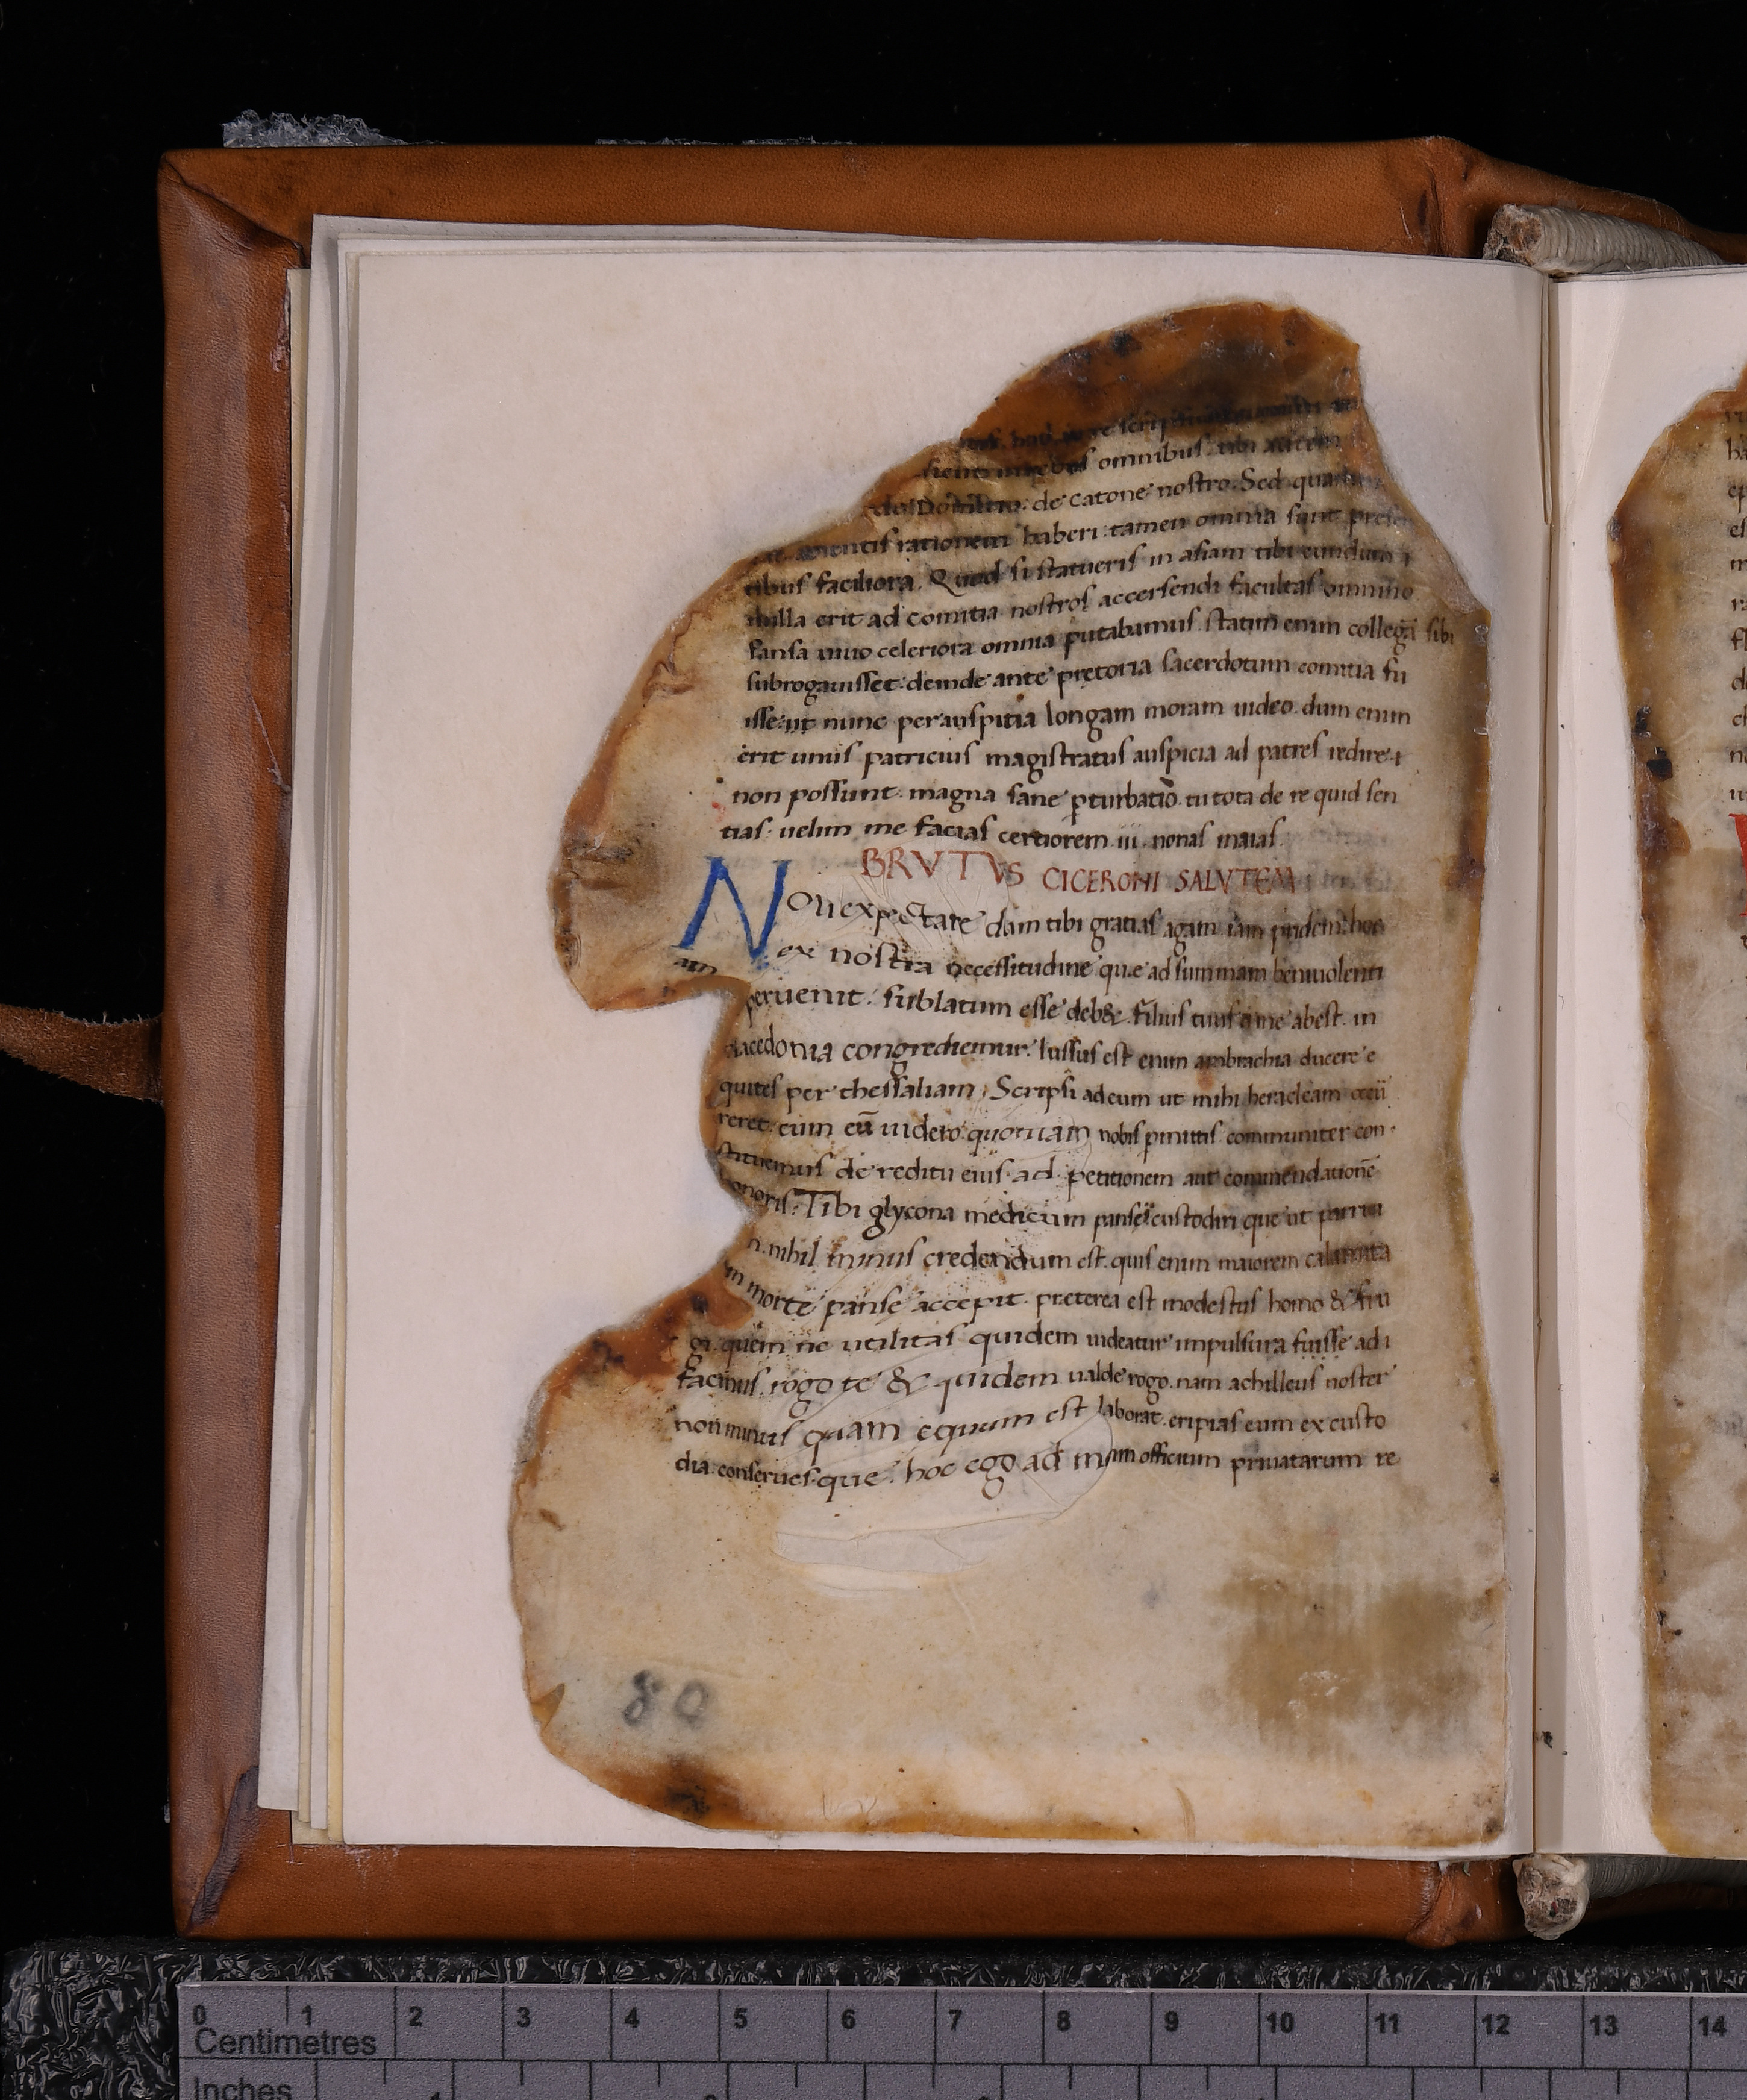 omnibus tibi autem
de catone nostro. Sed quam
rationem haberi tamen omnia sunt presen
tibus faciliora. Quod si statueris in asiam tibi eundum
nulla erit ad comitia nostros accersendi facultas omnino
Pansa uiuo celeriora omnia putabamus. statim enim collegā sibi
subrogauisset. deinde ante pretoria sacerdotum comitia fu
isse. ut nunc per auspitia longam moram uideo. dum enim
erit unus patricius magistratus auspicia ad patres redire
non possunt. magna sane pturbatio. tu tota de re quid sen
tias. uelim me facias certiorem. iii. nonas maias.
BRVTVS CICERONI SALVTEM
Noli expectare dum tibi gratias agam. iam pridem hoc
ex nostra necessitudine que ad summam beniuolenti
am peruenit. sublatum esse deb&. filius tuus a me abest. in
macedonia congrediemur. Iussus est enim ambrachia ducere e
quites per thessaliam. Scripsi ad eum ut mihi heracleam occu
reret. cum eū uidero. quoniam nobis pmittis. communiter con
stituemus de reditu eius. ad petitionem aut commendationē
honoris. Tibi glycona medicum panse
n. nihil minus credendum est. quis enim maiorem calamita
m morte panse accepit. preterea est modestus homo & fru
gi. quem ne utilitas quidem uideatur impulsura fuisse ad
facinus. rogo te & quidem ualde rogo. nam achilleus noster
non minus quam equum est laborat. eripias eum ex custo
dia. conseruesque. hoc ego ad officium priuatarum re
80
0 1 2 3 4 5 6 7 8 9 10 11 12 13 14
Centimetres
Inches